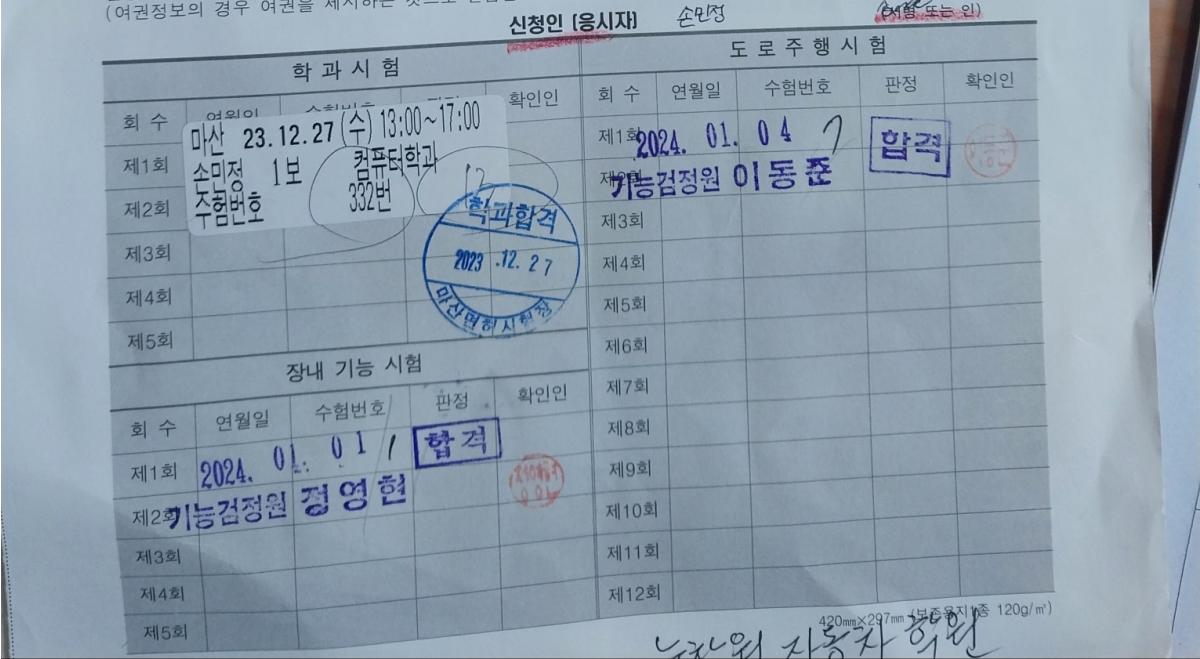 (여권정보의 경우 여권을 제시하는 것으로
신청인 (응시자) 손민정 (서명 또는 인)
학 과 시 험
회 수 연월일 수험번호 판정 확인인
마산 23.12.27(수) 13:00~17:00
손미정 1보 컴퓨터학과
수험번호 332번
제1회
제2회
제3회
제4회
제5회
학과합격
2023 .12. 27
마산면허시험장
장내 기능 시험
회 수 연월일 수험번호 판정 확인인
제1회 2024. 01. 01 1 합격
제2회 기능검정원 정영현
제3회
제4회
제5회
도 로 주 행 시 험
회 수 연월일 수험번호 판정 확인인
제1회 2024. 01. 04 7 합격
제2회 기능검정원 이동준
제3회
제4회
제5회
제6회
제7회
제8회
제9회
제10회
제11회
제12회
420㎜×297㎜ (보존용지1종 120g/㎡)
자동차 학원